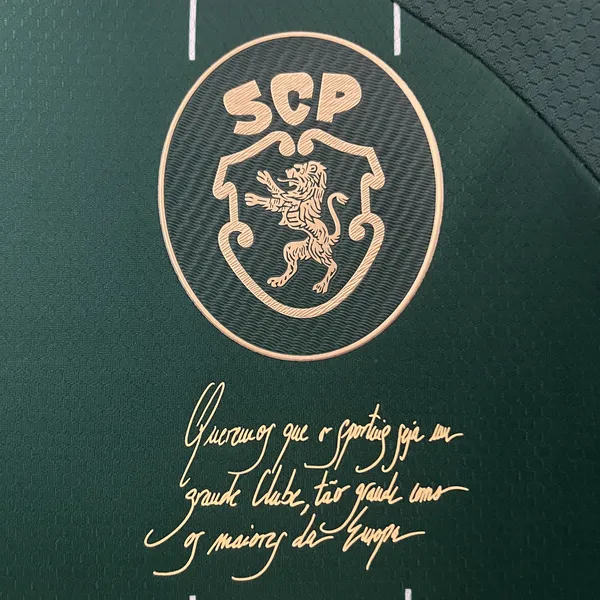 SCP
Queremos que o Sporting seja um
grande Clube, tão grande como
os maiores da Europa